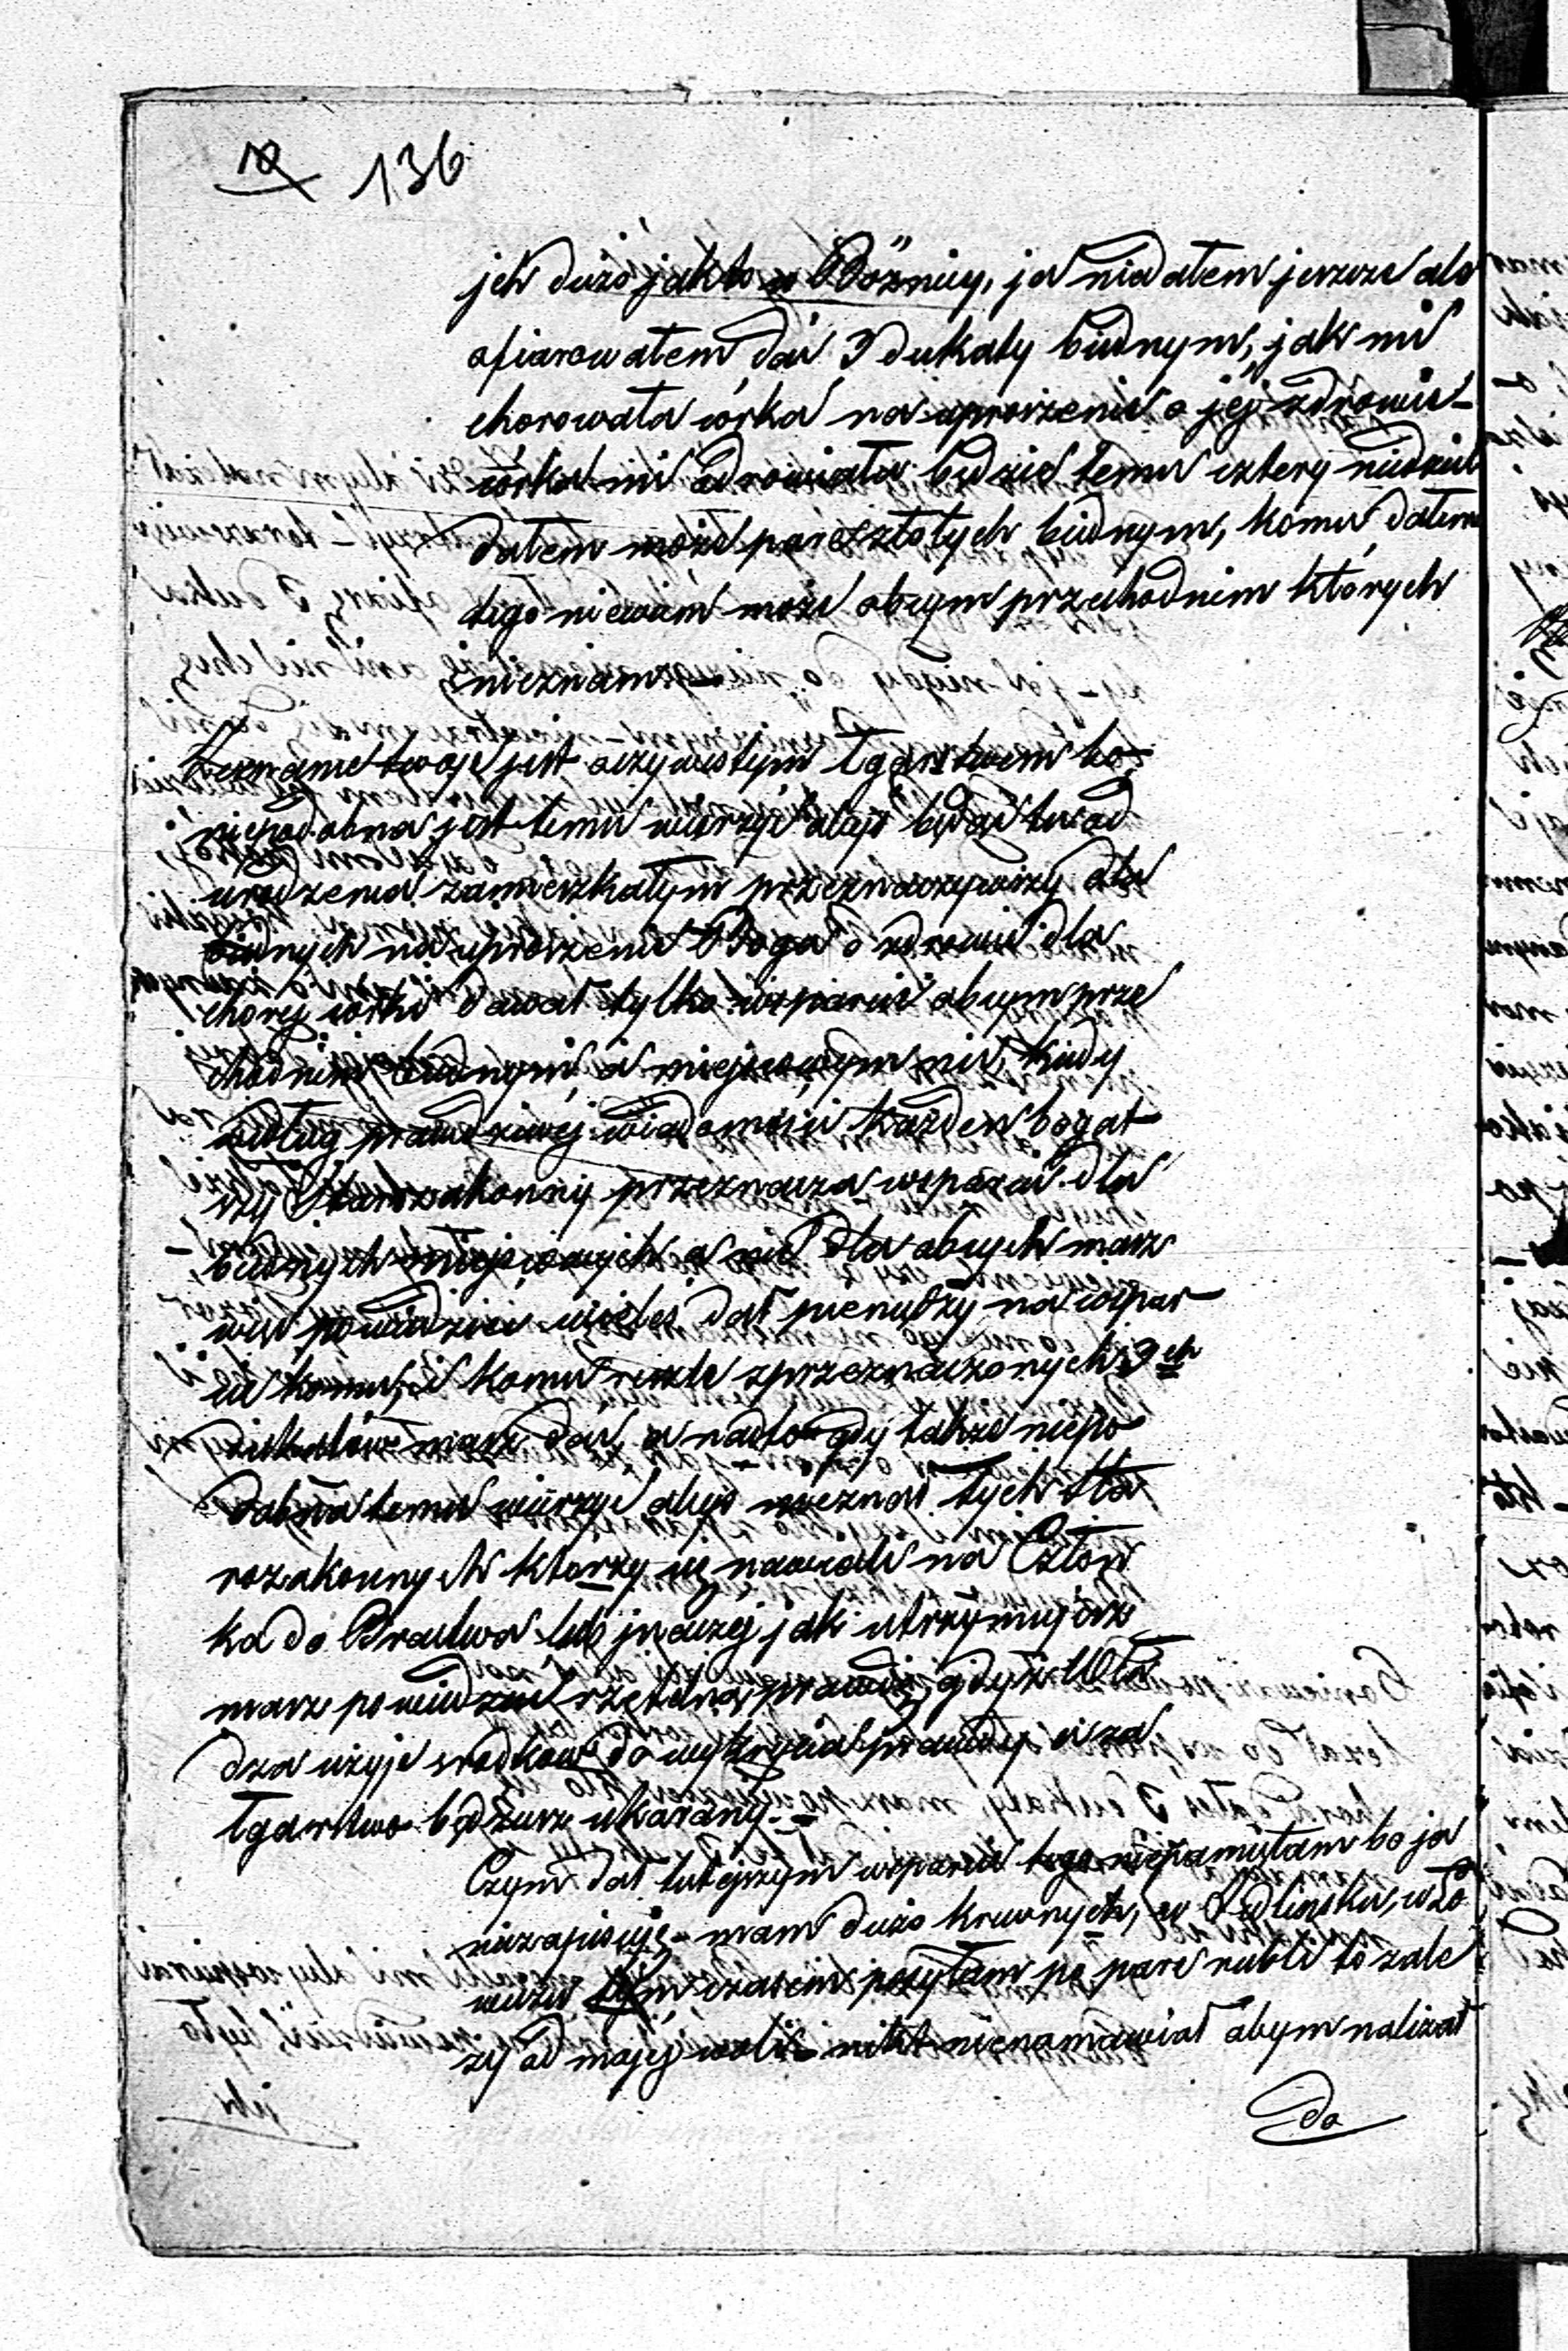 10 136
jch dużo jak to w Bóżnicy, ja niedałem jeszcze ale
ofiarowałem dać 3 dukaty biednym, jak mi
chorowała córka na uproszenie o jéj zdrowie –
córka mi zdrowiała będzie temu cztery niedziele
dałem może parę złotych biednym, komu dałem
tego niewiem może obcym przechodnim których
nieznam. –
Zeznanie twoje jest oczywistym łgarstwem bo
niepodobna jest temu wierzyć abyś będąc tu od
urodzenia zamieszkałym przeznaczywszy dla
biednych na uproszenie Boga o zdrowie dla
chorej córki dawał tylko wsparcie obcym prze
chodnim biednym a miejscowym nie, kiedy
według prawdziwej wiadomości każden bogat
szy Starozakonny przeznacza wsparcie dla
biednych miejscowych a nie dla obcych masz
więc powiedzieć wieleś dał pieniędzy na wspar
cie komu, i komu resztę z przeznaczonych 3ch
dukatów masz dać, a nadto gdy także niepo
dobna temu wierzyć abyś nieznał tych Sta
rozakonnych którzy się nawiali na Człon
ka do Bractwa lub inaczéj jak utrzymujesz
masz powiedzieć rzetelną prawdę, gdyż Wła
dza użyje srodków do wykrycia prawdy a za
łgarstwo będziesz ukarany. –
Czym dał tutejszym wsparcie tego niepamiętam bo ja
niezapisuję – mam dużo krewnych, w Jedlinsku, w Ło
wiczu tym czasem posyłam po parę rubli to zale
zy od mojéj woli – nikt nienamawiał abym należał
do